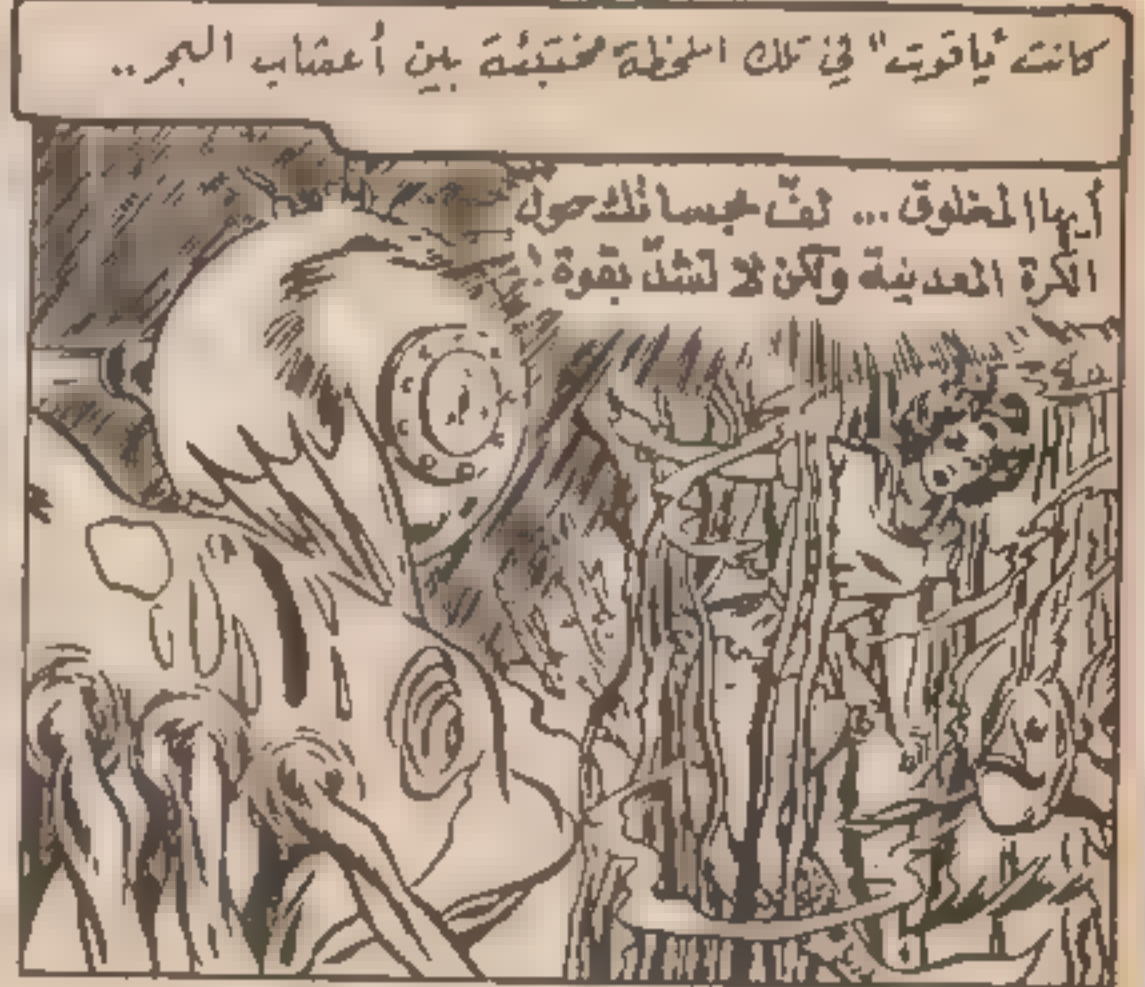 كانت "ياقوت" في تلك اللحظة مختبئة بين أعشاب البحر..
أيها المخلوق... لفّ مجساتك حول
الكرة المعدنية ولكن لا تشدّ بقوة!